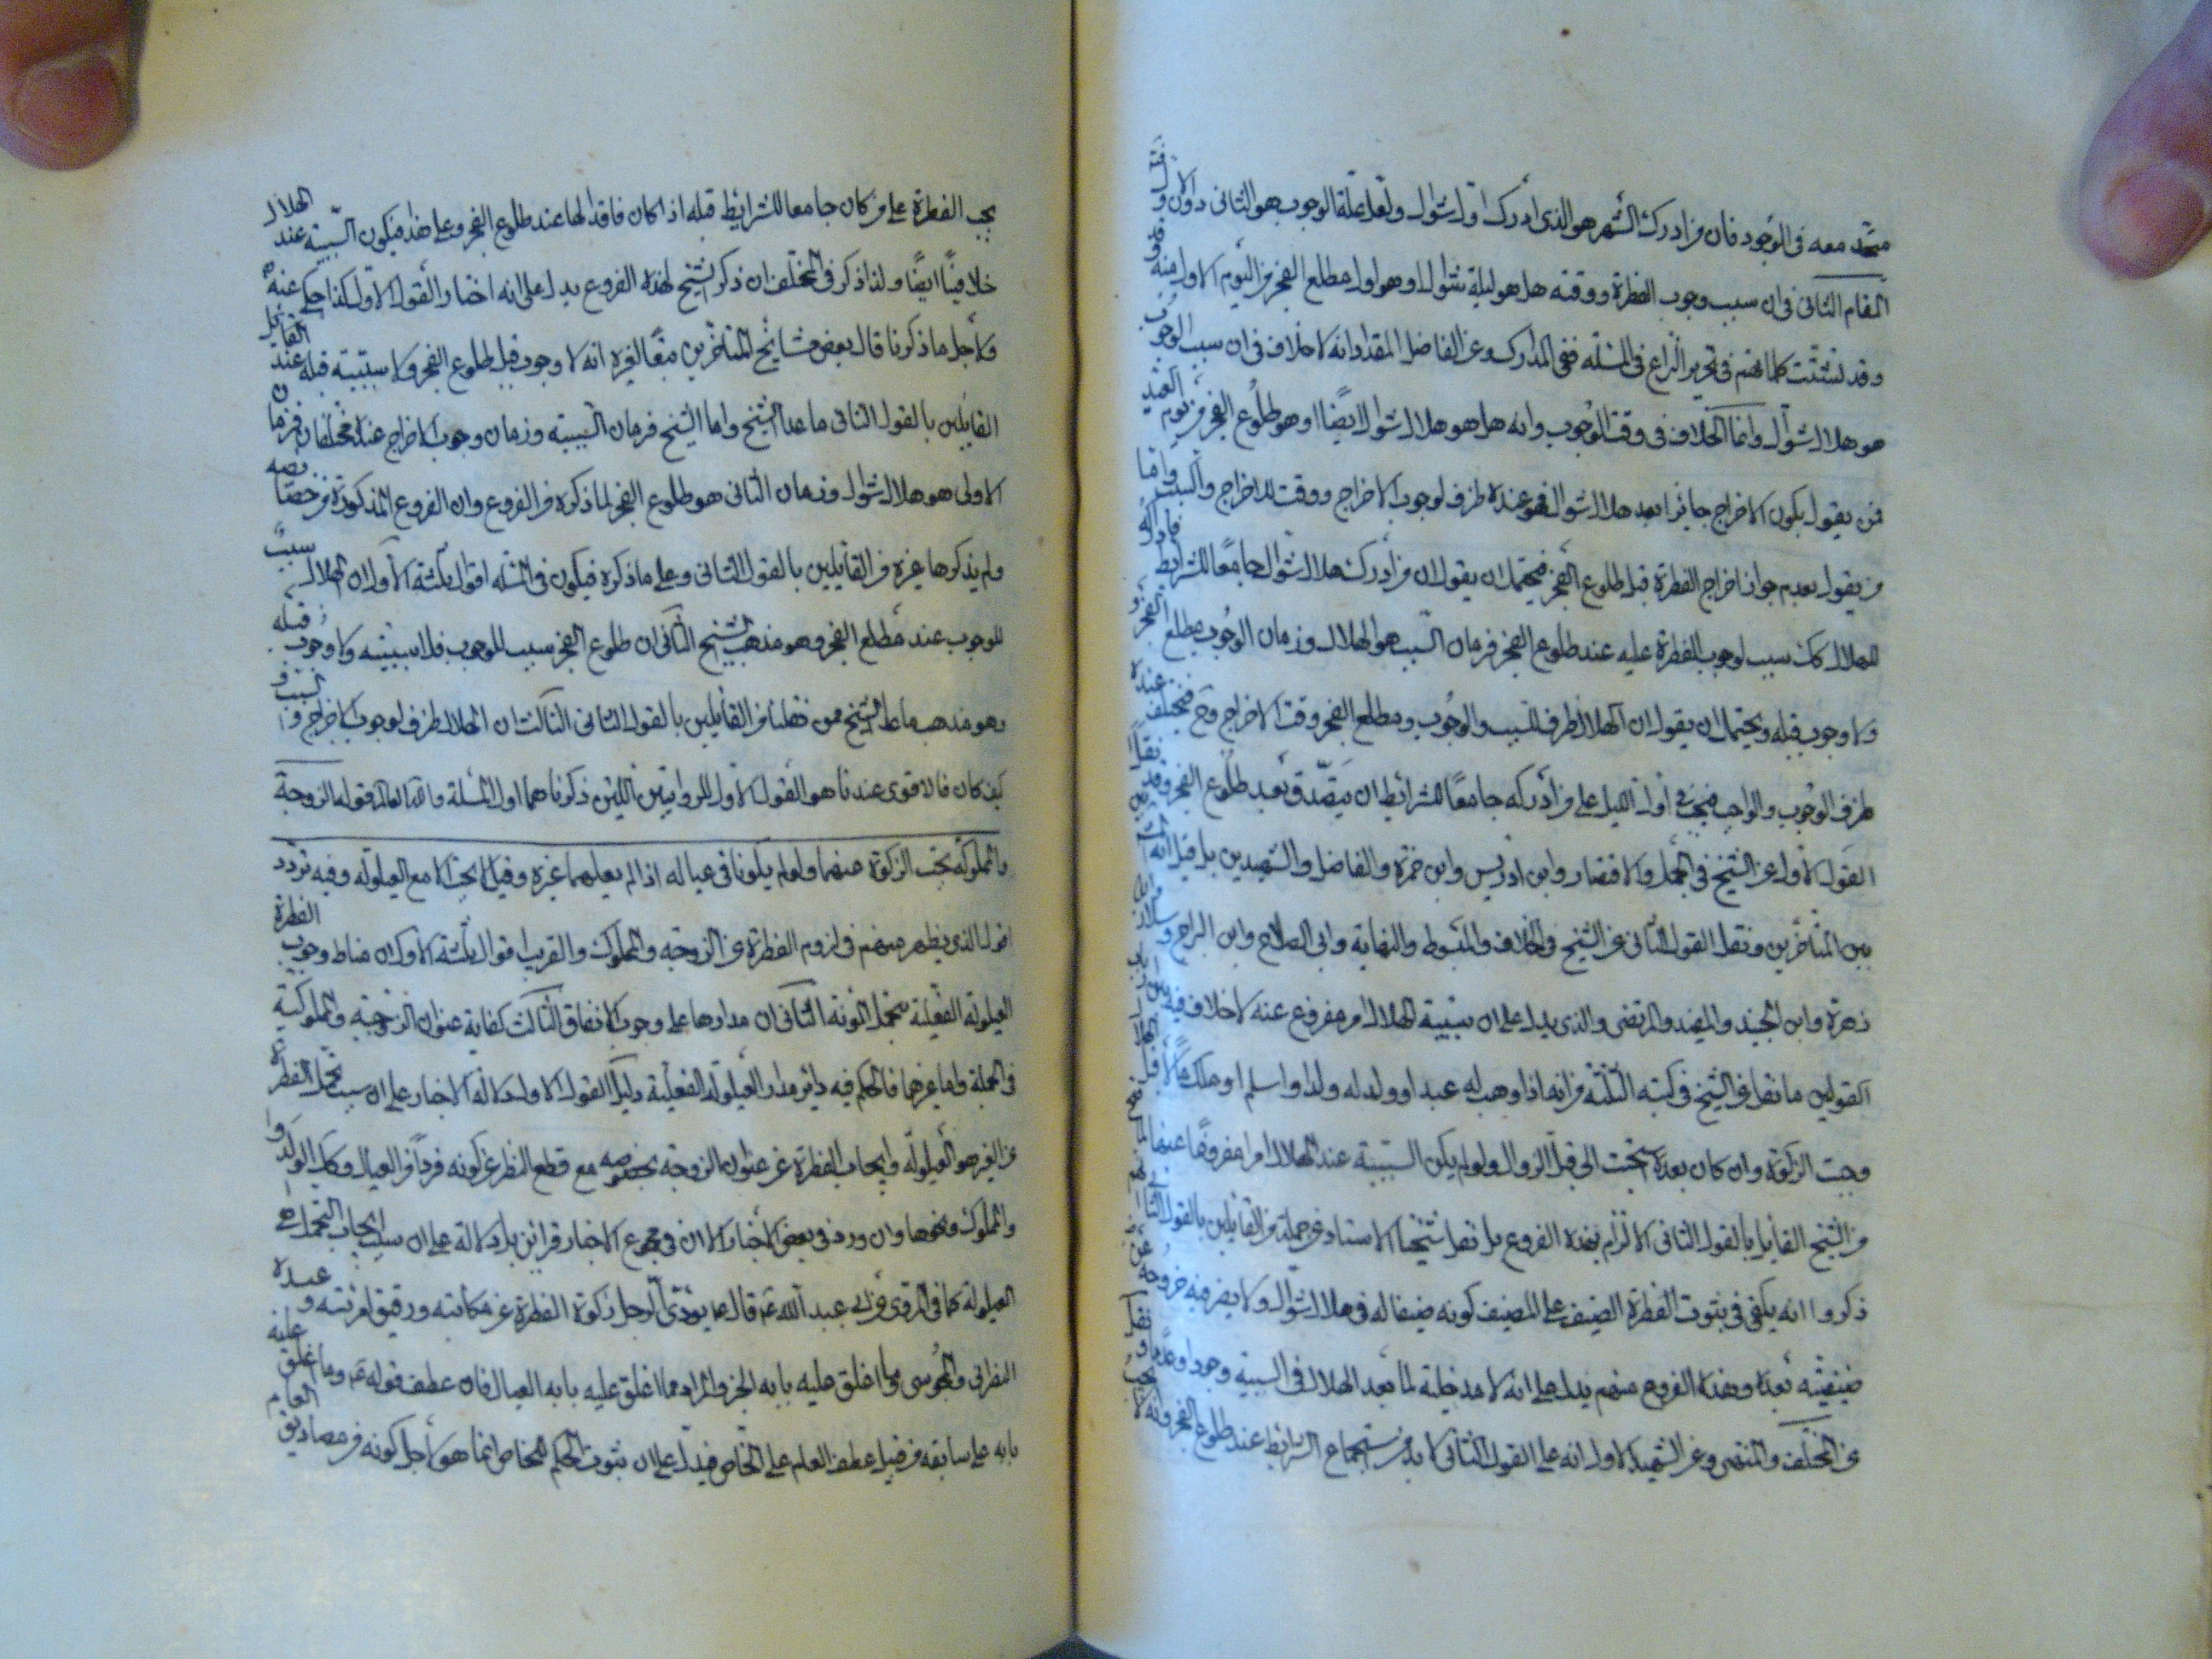 متحد معه فى الوجود فان من ادرك الشهر هو الذى ادرك اول شوال ولعل علة الوجوب هو الثانى دون الاول
المقام الثانى فى ان سبب وجوب الفطرة ووقته هل هو ليلة شوال او هو اول مطلع الفجر من اليوم الاول منه
وقد تشتت كلماتهم فى تحرير النزاع فى المسئلة ففى المدارك وعن الفاضل المقداد انه لا خلاف فى ان سبب الوجوب
هو هلال شوال وانما الخلاف فى وقت الوجوب وانه هل هو هلال شوال ايضًا او هو طلوع الفجر من يوم العيد
فمن يقول بكون الاخراج جايزا بعد هلال شوال فهو عنده ظرف لوجوب الاخراج ووقت للاخراج والسبب واما
من يقول بعدم جواز اخراج الفطرة قبل طلوع الفجر فيحتمل ان يقول ان من ادرك هلال شوال جامعًا للشرايط
للهلال كان سبب لوجوب الفطرة عليه عند طلوع الفجر فزمان السبب هو الهلال وزمان الوجوب مطلع الفجر
ولا وجوب قبله ويحتمل ان يقول ان الهلال ظرف للسبب والوجوب ومطلع الفجر وقت الاخراج وح فيختلف عنده
ظرف الوجوب والواجب فيجب فى اول الليل على من ادركه جامعًا للشرائط ان يتصدق بعد طلوع الفجر وقد نقل
القول الاول عن الشيخ فى الجمل والاقتصار وابن ادريس وابن حمزة والفاضل والشهيدين بل قيل انه
بين المتأخرين ونقل القول الثانى عن الشيخ فى الخلاف والمبسوط والنهاية وابى الصلاح وابن البراج وسلار
زهرة وابن الجنيد والمفيد والمرتضى والذى يدل على ان سببية الهلال امر مفروغ عنه لا خلاف فيه بين
القولين ما نقل عن الشيخ فى كتبه الثلثة من انه اذا وهب له عبد او ولد له ولد او اسلم او ملك مالًا قبل
وجبت الزكوة وان كان بعده استحبت الى قبل الزوال ولو لم يكن السببية عند الهلال امرا مفروغًا عنها
من الشيخ القايل بالقول الثانى الالتزام بهذه الفروع بل نقل شيخنا الاستاد عن جملة من القائلين بالقول الثانى
ذكروا انه يكفى فى ثبوت الفطرة الضيف على المضيف كونه ضيفا له فى هلال شوال ولا يضر فيه خروجه عن
ضيفيته بعده وهذه الفروع منهم يدل على انه لا مدخلية لما بعد الهلال فى السببية وجودا وعدما ونقل
عن المختلف والمنتهى وعن الشهيد الاول انه على القول الثانى لا بد من استجماع الشرائط عند طلوع الفجر وانه لا
يجب الفطرة على من كان جامعا للشرايط قبله اذا كان فاقدا لها عند طلوع الفجر وعلى هذا فيكون السببية عند الهلال
خلافيًا ايضًا ولذا ذكر فى المختلف ان ذكر الشيخ لهذه الفروع يدل على انه اختار القول الاول كذا حكى عنه
ولاجل ما ذكرنا قال بعض مشايخ المتاخرين تبعًا لغيره انه لا وجوب قبل طلوع الفجر ولا سببية قبله عند
القايلين بالقول الثانى ما عدا الشيخ واما الشيخ فزمان السببية وزمان وجوب الاخراج عنده مختلفان فزمان
الاولى هو هلال شوال وزمان الثانى هو طلوع الفجر لما ذكره من الفروع وان الفروع المذكورة من خصايصه
ولم يذكرها غيره من القائلين بالقول الثانى وعلى ما ذكره فيكون فى المسئلة اقوال ثلثة الاول ان الهلال سبب
للوجوب عند مطلع الفجر وهو مذهب الشيخ الثانى ان طلوع الفجر سبب للوجوب فلا سببيته ولا وجوب قبله
وهو مذهب ما عدا الشيخ ممن نقلنا من القائلين بالقول الثانى الثالث ان الهلال ظرف لوجوب الاخراج والسبب و
كيف كان فالاقوى عندنا هو القول الاول للروايتين اللتين ذكرناهما اول المسئلة والله العالم قوله الزوجة
والمملوكة تجب الزكوة عنهما ولو لم يكونا فى عياله اذا لم يعلهما غيره وقيل لا يجب الا مع العيلولة وفيه تردد
اقول الذى يظهر منهم فى لزوم الفطرة عن الزوجة والمملوك والقريب اقوال ثلثة الاول ان مناط وجوب الفطرة
العيلولة الفعلية بتحمل المؤنة الثانى ان مدارها على وجوب الانفاق الثالث كفاية عنوان الزوجية والمملوكية
فى الجملة واما غيرهما فالحكم فيه دائر مدار العيلولة الفعلية دليل القول الاول دلالة الاخبار على ان سبب تحمل الفطرة
عن الغير هو العيلولة وايجاب الفطرة عن عنوان الزوجة بخصوصه مع قطع النظر عن كونه فردًا من العيال وكك الولد وا
والمملوك ونحوها وان ورد فى بعض الاخبار الا ان فى مجموع الاخبار قراين بل دلالة على ان سبب ايجاب التحمل هى
العيلولة كما فى المروى عن ابى عبد الله ع قال ع يودى الرجل زكوة الفطرة عن مكاتبه ورقيق امرئته وعبده
النصرانى والمجوسى وما اغلق عليه بابه الخبر والمراد مما اغلق عليه بابه العيال فان عطف قوله ع وما اغلق عليه
بابه على سابقه من قبيل عطف العام على الخاص فيدل على ان ثبوت الحكم للخاص انما هو لاجل كونه من مصاديق العام